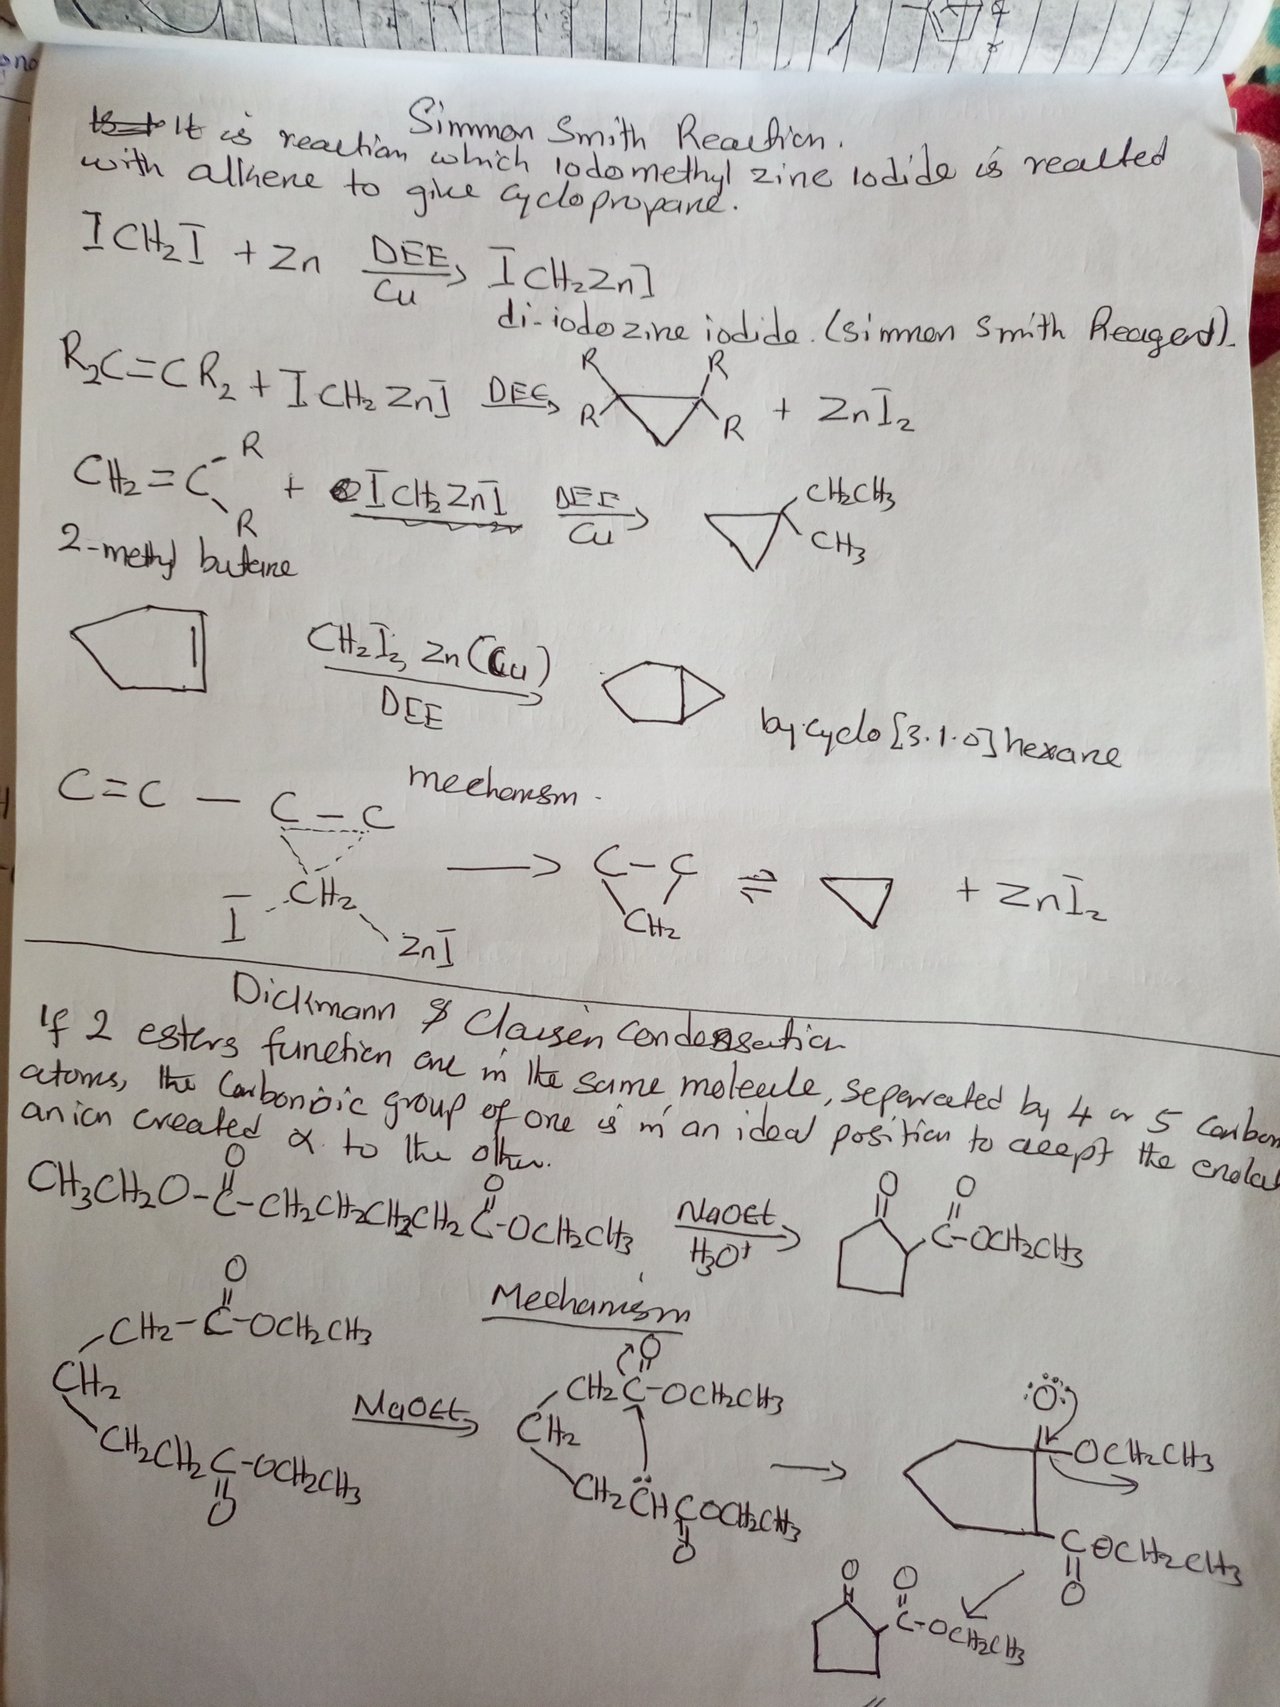 Simmon Smith Reaction.
It is reaction which Iodomethyl zinc Iodide is reacted
with alkene to give cyclopropane.
ICH₂I + Zn DEE Cu → ICH₂ZnI
di-iodo zinc iodide. (Simmon Smith Reagent).
R₂C=CR₂ + ICH₂ZnI DEE → R R R R + ZnI₂
CH₂=C R R + ICH₂ZnI DEE Cu → CH₂CH₃ CH₃
2-methyl butane
CH₂I₂, Zn(Cu) DEE →
bycyclo[3.1.0]hexane
mechanism.
C=C — C – C
CH₂ I ZnI → C – C CH₂ ⇌ + ZnI₂
Dickmann & Claisen Condensation
If 2 esters function are in the same molecule, separated by 4 or 5 carbon
atoms, the Carbon group of one is in an ideal position to accept the
anion created α to the other.
CH₃CH₂O-C(=O)-CH₂CH₂CH₂CH₂C(=O)-OCH₂CH₃ NaOEt H₃O⁺ → O O C-OCH₂CH₃
Mechanism
CH₂-C(=O)-OCH₂CH₃
CH₂
CH₂CH₂C(=O)-OCH₂CH₃
NaOEt →
CH₂C(=O)-OCH₂CH₃
CH₂
CH₂C̈HC(=O)OCH₂CH₃
→
:Ö: OCH₂CH₃
C(=O)OCH₂CH₃
O O C-OCH₂CH₃